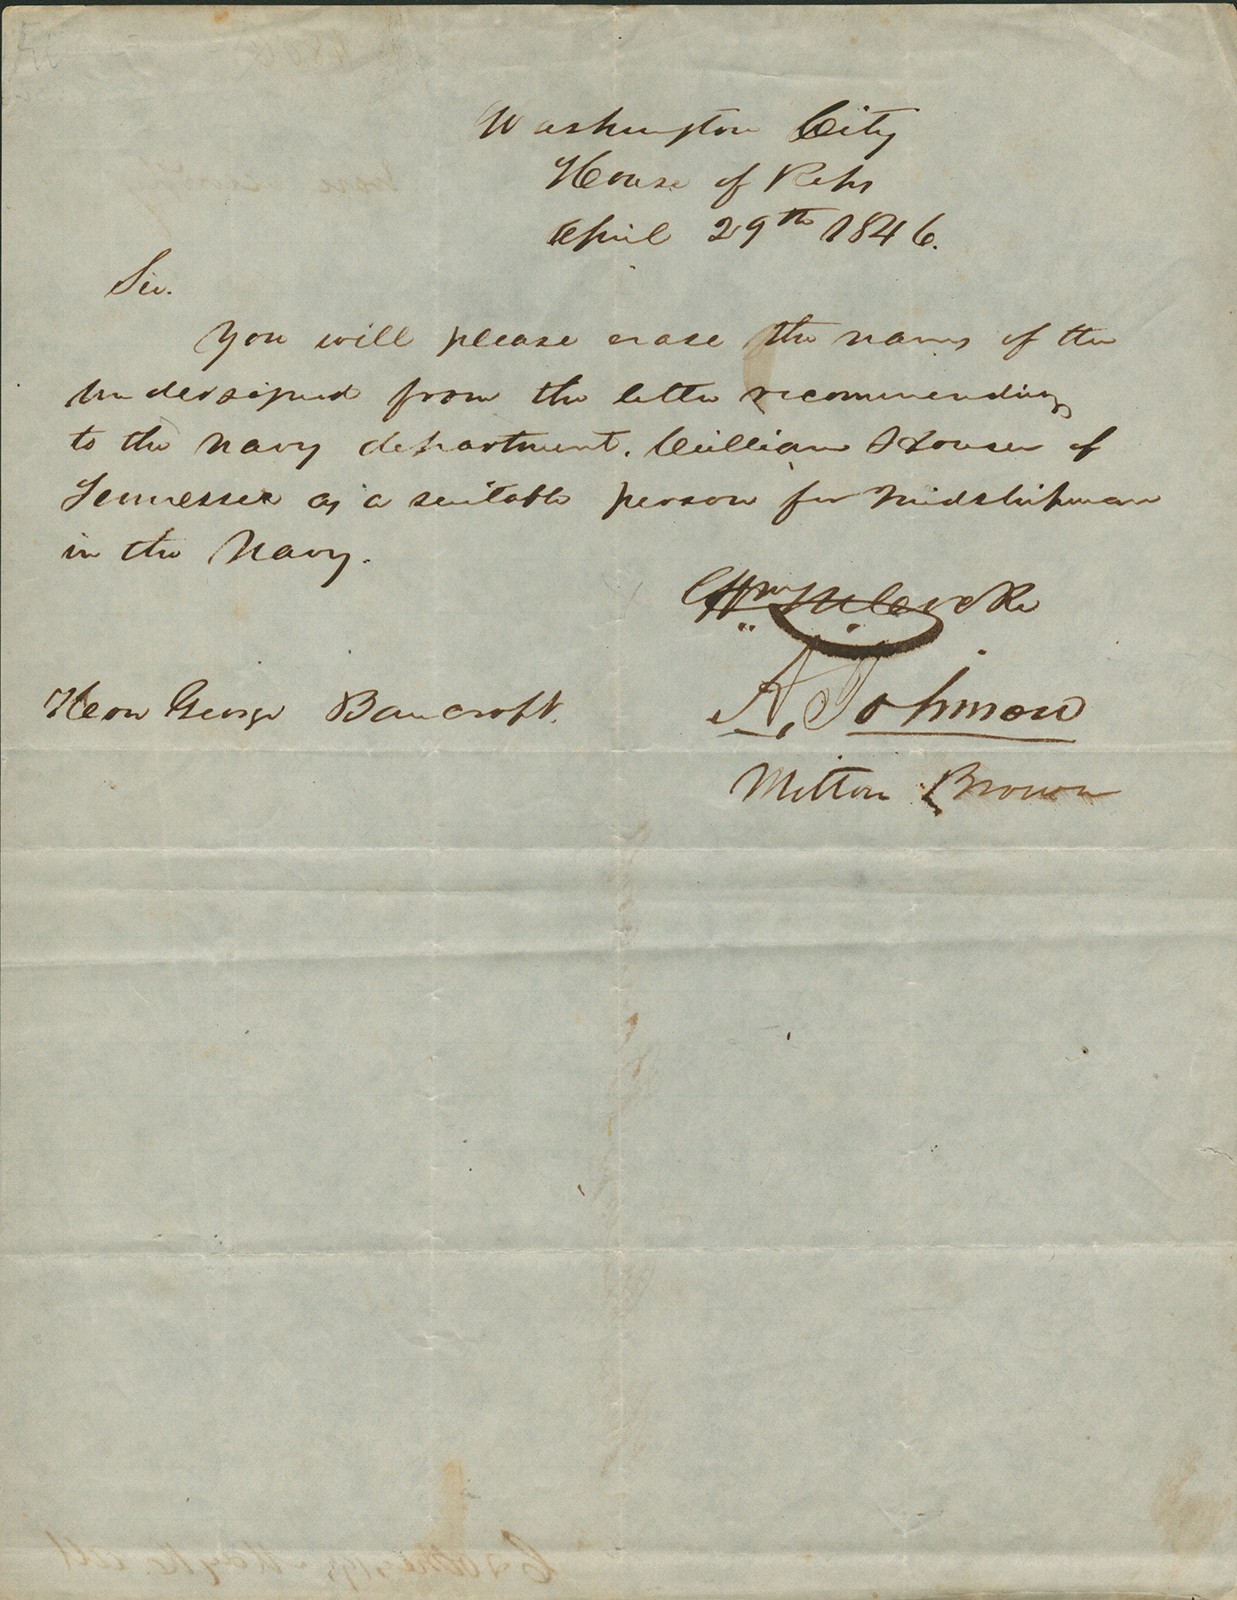 Washington City
House of Reps
April 29th 1846.
Sir.
You will please erase the names of the
undersigned from the letter recommending
to the navy department. William Houser of
Tennessee as a suitable person for Midshipman
in the Navy.
Wm M. Cocke
A. Johnson
Hon George Bancroft.
Milton Brown